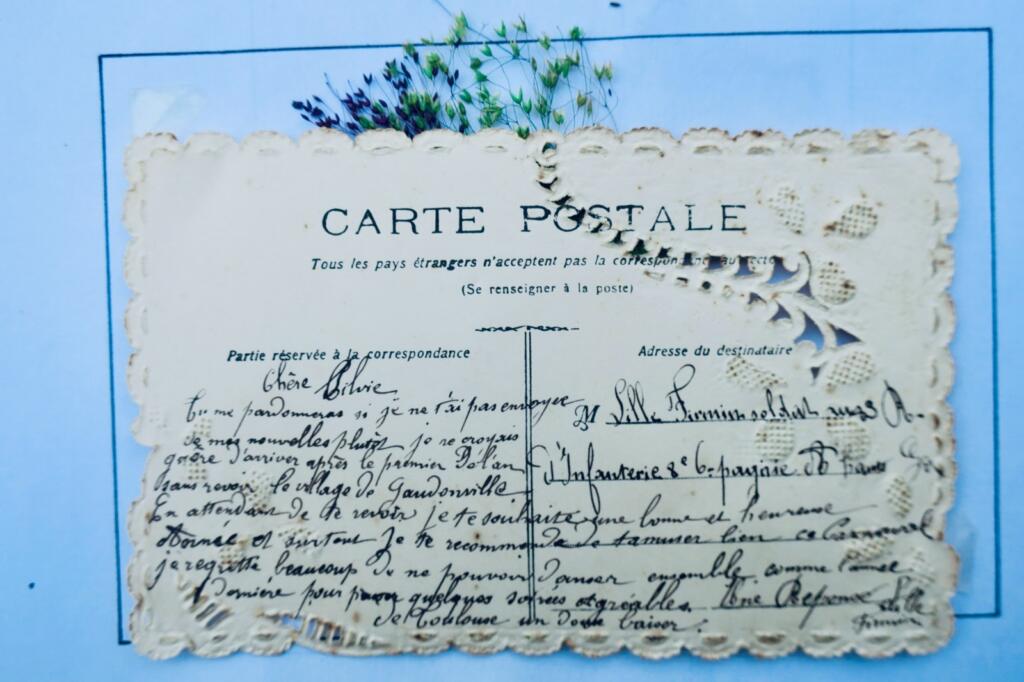 CARTE POSTALE
Tous les pays étrangers n'acceptent pas la correspondance au recto
(Se renseigner à la poste)
Partie réservée à la correspondance
Adresse du destinataire
Chère Silvie
Tu me pardonneras si je ne t'ai pas envoyée
de mes nouvelles plutôt je ne croyais
guère d'arriver après le premier De l'an
sans revoir le village de Gaudonville
En attendant de te revoir je te souhaite une bonne et heureuse
Année et surtout je te recommande de t'amuser bien ce Carnaval
je regrette beaucoup de ne pouvoir danser ensemble comme l'année
dernière pour quelques soirées agréables. Une Reponse
de Toulouse un doux baiser.
Lille
Firmin
M Lille Firmin soldat
d'Infanterie 8e